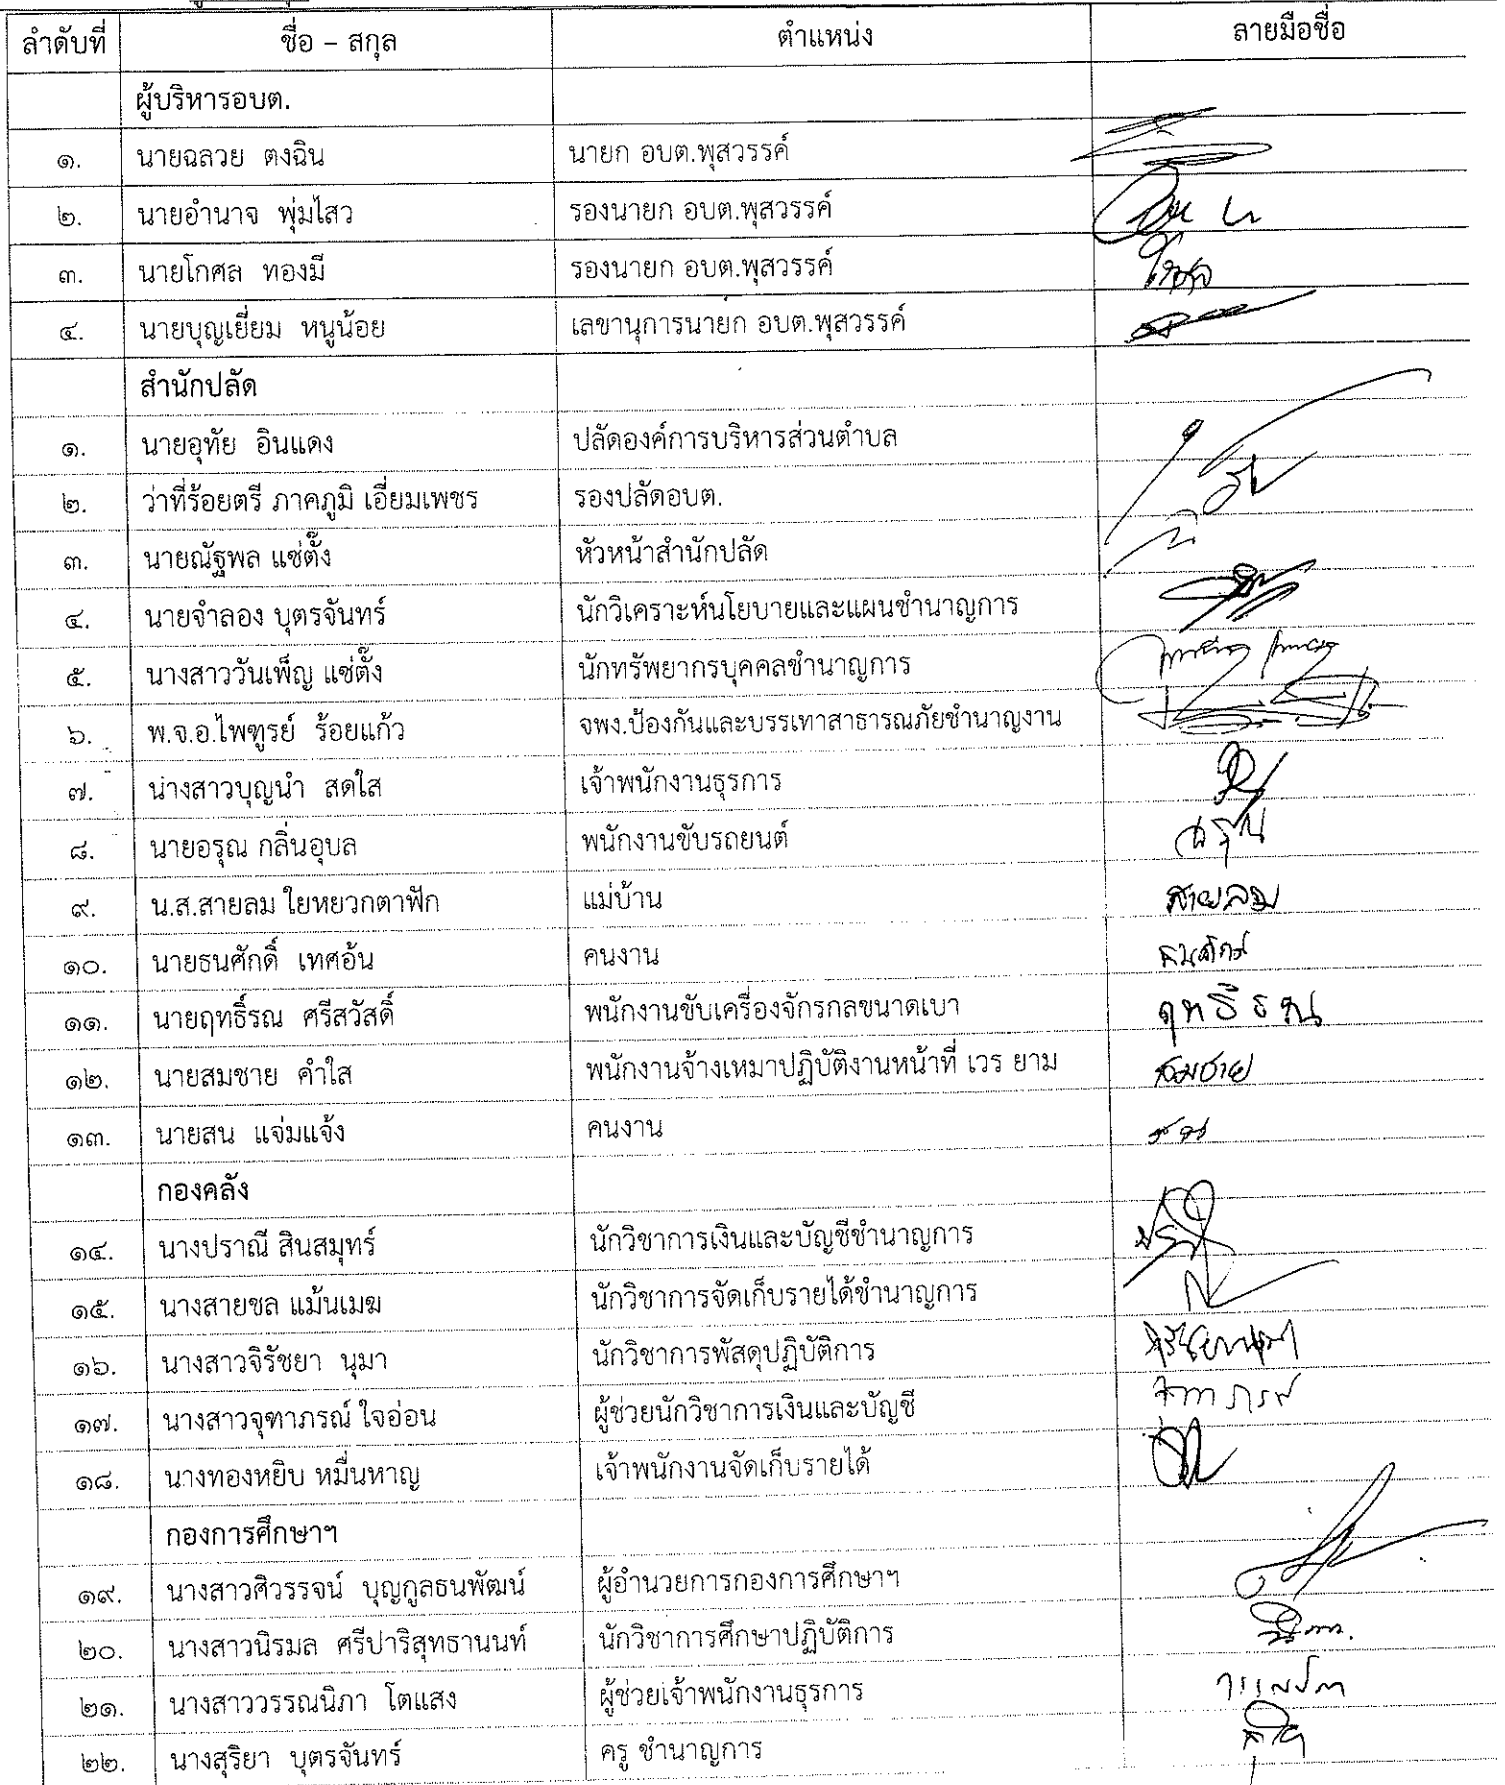 ลำดับที่ ชื่อ – สกุล ตำแหน่ง ลายมือชื่อ
ผู้บริหารอบต.
๑. นายฉลวย ตงฉิน นายก อบต.พุสวรรค์
๒. นายอำนาจ พุ่มไสว รองนายก อบต.พุสวรรค์
๓. นายโกศล ทองมี รองนายก อบต.พุสวรรค์
๔. นายบุญเยี่ยม หนูน้อย เลขานุการนายก อบต.พุสวรรค์
สำนักปลัด
๑. นายอุทัย อินแดง ปลัดองค์การบริหารส่วนตำบล
๒. ว่าที่ร้อยตรี ภาคภูมิ เอี่ยมเพชร รองปลัดอบต.
๓. นายณัฐพล แซ่ตั๊ง หัวหน้าสำนักปลัด
๔. นายจำลอง บุตรจันทร์ นักวิเคราะห์นโยบายและแผนชำนาญการ
๕. นางสาววันเพ็ญ แซ่ตั๊ง นักทรัพยากรบุคคลชำนาญการ
๖. พ.จ.อ.ไพฑูรย์ ร้อยแก้ว จพง.ป้องกันและบรรเทาสาธารณภัยชำนาญงาน
๗. นางสาวบุญนำ สดใส เจ้าพนักงานธุรการ
๘. นายอรุณ กลิ่นอุบล พนักงานขับรถยนต์ อรุณ
๙. น.ส.สายลม ใยหยวกตาฟัก แม่บ้าน สายลม
๑๐. นายธนศักดิ์ เทศอ้น คนงาน ธนศักดิ์
๑๑. นายฤทธิ์รณ ศรีสวัสดิ์ พนักงานขับเครื่องจักรกลขนาดเบา ฤทธิ์รณ
๑๒. นายสมชาย คำใส พนักงานจ้างเหมาปฏิบัติงานหน้าที่ เวร ยาม สมชาย
๑๓. นายสน แจ่มแจ้ง คนงาน สน
กองคลัง
๑๔. นางปราณี สินสมุทร์ นักวิชาการเงินและบัญชีชำนาญการ
๑๕. นางสายชล แม้นเมฆ นักวิชาการจัดเก็บรายได้ชำนาญการ
๑๖. นางสาวจิรัชยา นุมา นักวิชาการพัสดุปฏิบัติการ
๑๗. นางสาวจุฑาภรณ์ ใจอ่อน ผู้ช่วยนักวิชาการเงินและบัญชี จุฑาภรณ์
๑๘. นางทองหยิบ หมื่นหาญ เจ้าพนักงานจัดเก็บรายได้
กองการศึกษาฯ
๑๙. นางสาวศิวรรจน์ บุญกูลธนพัฒน์ ผู้อำนวยการกองการศึกษาฯ
๒๐. นางสาวนิรมล ศรีปาริสุทธานนท์ นักวิชาการศึกษาปฏิบัติการ
๒๑. นางสาววรรณนิภา โตแสง ผู้ช่วยเจ้าพนักงานธุรการ
๒๒. นางสุริยา บุตรจันทร์ ครู ชำนาญการ